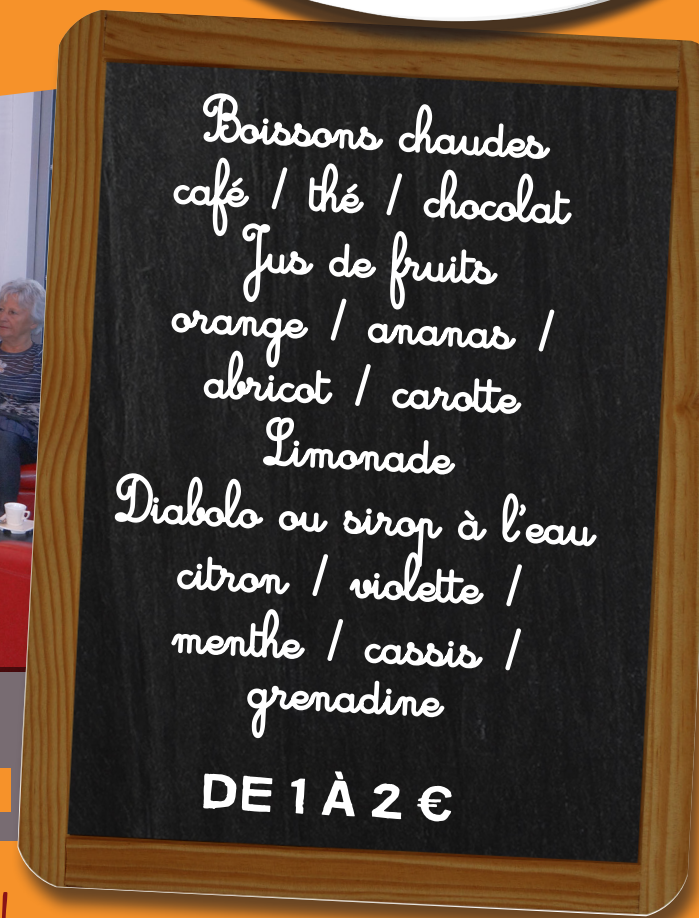 Boissons chaudes
café / thé / chocolat
Jus de fruits
orange / ananas /
abricot / carotte
Limonade
Diabolo ou sirop à l'eau
citron / violette /
menthe / cassis /
grenadine
DE 1 À 2 €